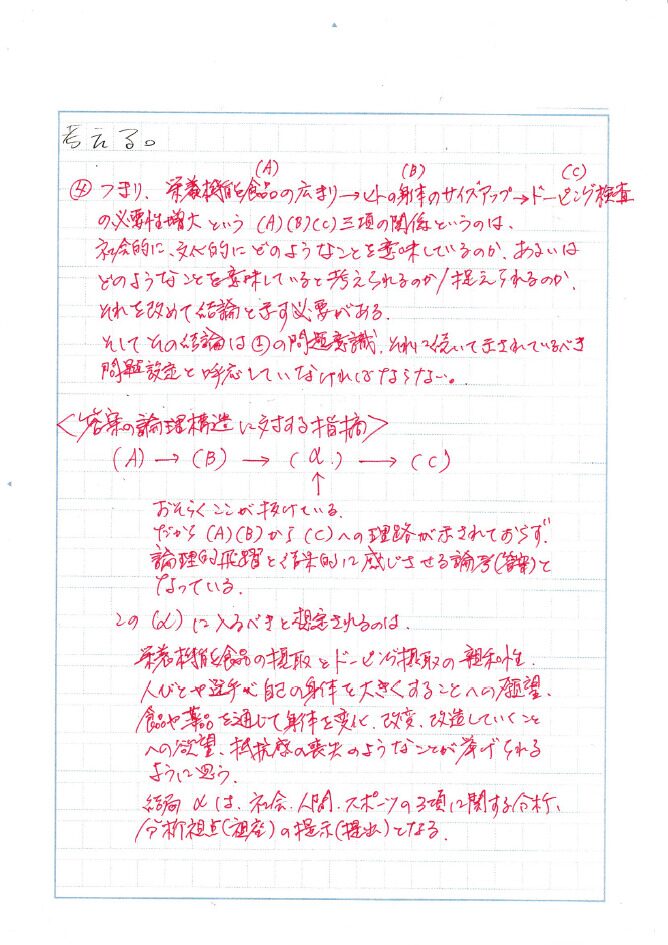 考える。
(A) (B) (C)
④ つまり、栄養機能食品の広まり→ヒトの身体のサイズアップ→ドーピング検査
の必要性増大という (A)(B)(C)三項の関係というのは、
社会的に、文化的にどのようなことを意味しているのか、あるいは
どのようなことを意味していると考えられるのか/捉えられるのか、
それを改めて結論と示す必要がある。
そしてその結論は①の問題意識、それに続いて示されているべき
問題設定と呼応していなければならない。
<答案の論理構造に対する指摘>
(A) → (B) → (α) → (C)
↑
おそらくここが抜けている。
だから (A)(B)から(C)への理路が示されておらず、
論理的飛躍と結果的に感じさせる論考(答案)と
なっている。
この (α) に入るべきと想定されるのは、
栄養機能食品の摂取とドーピング摂取の親和性、
人びとや選手が自己の身体を大きくすることへの願望、
食品や薬品を通じて身体を変化、改変、改造していくこと
への欲望、抵抗感の喪失のようなことが挙げられる
ように思う。
結局 αは、社会、人間、スポーツの3項に関する分析、
分析視点(視座)の提示(提出)となる。